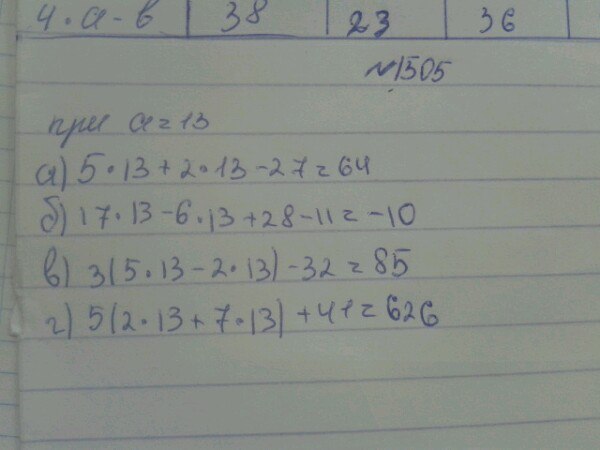 4·а-в 38 23 36
№1505
при а=13
а) 5·13+2·13-27=64
б) 17·13-6·13+28-11=-10
в) 3(5·13-2·13)-32=85
г) 5(2·13+7·13)+41=626